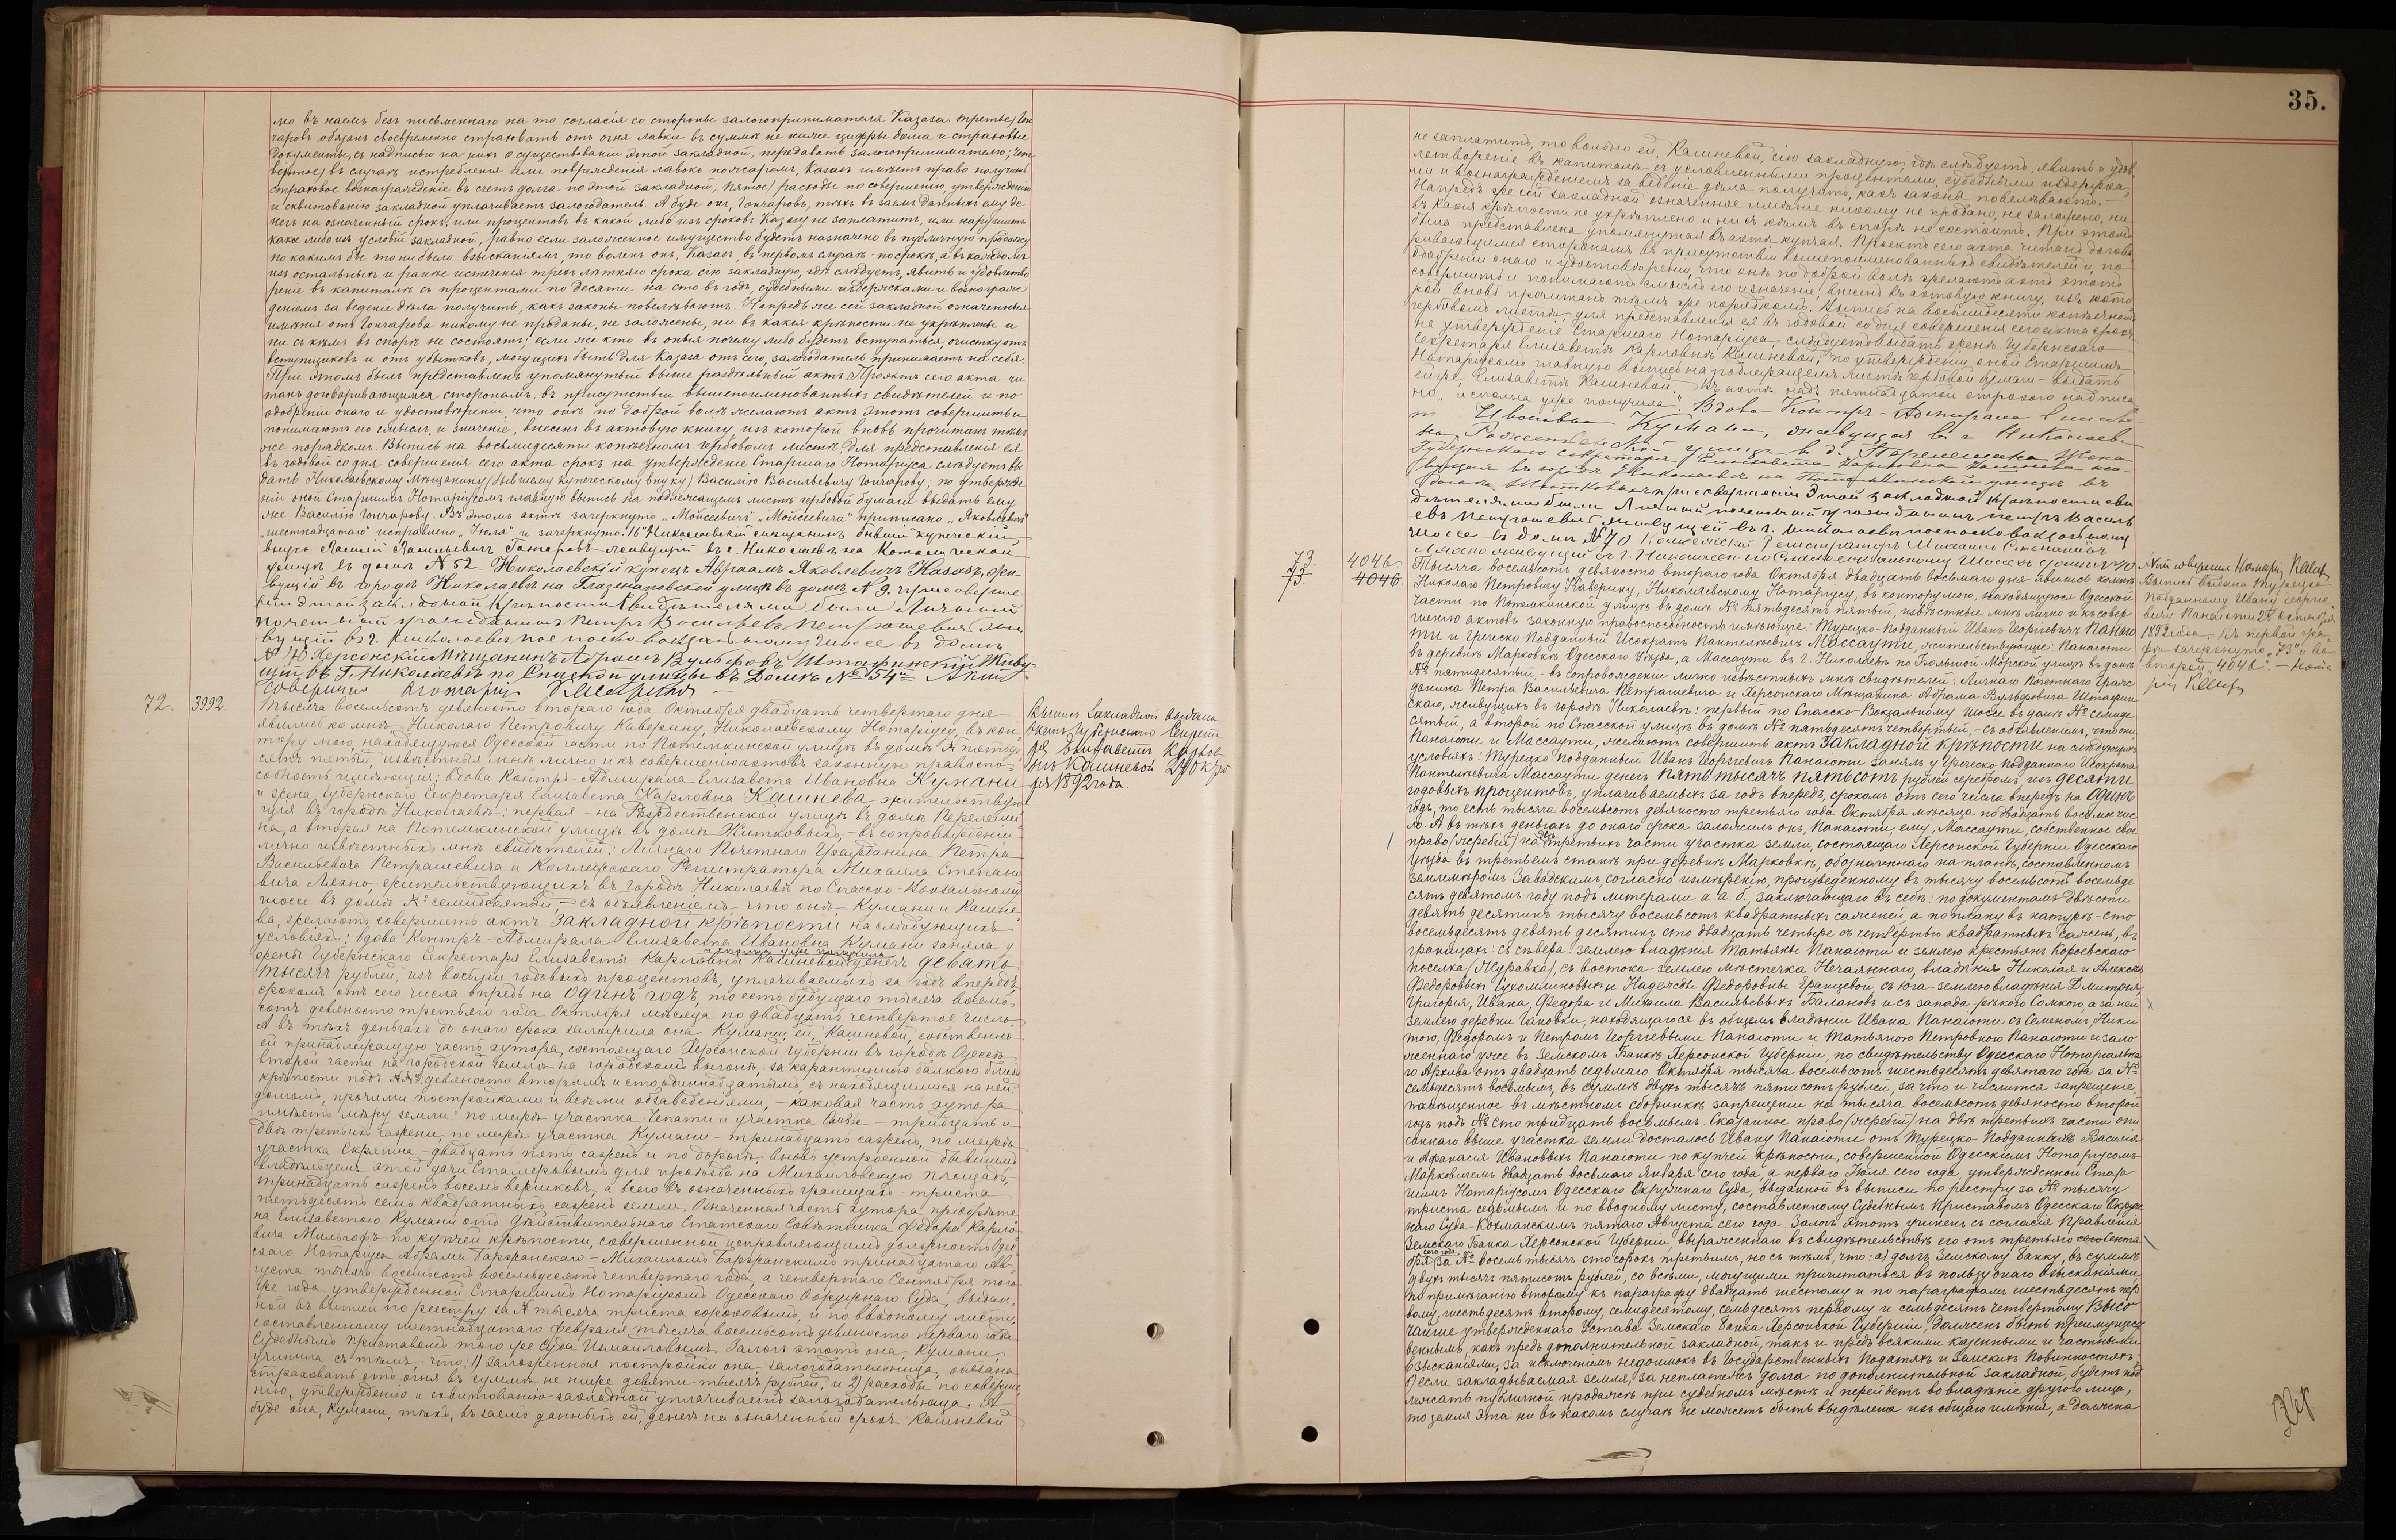 35.
мо въ наемъ безъ письменнаго на то согласія со стороны залогопринимателя Казаса. третье) Гон
чаровъ обязанъ своевременно страховать отъ огня лавки въ суммѣ не ниже цифры долга и страховые
документы, съ надписью на нихъ о существованіи этой закладной, передавать залогопринимателю; чет
вертое) въ случаѣ истребленія или поврежденія лавокъ пожаромъ, Казасъ имѣетъ право получить
страховое вознагражденіе въ счетъ долга по этой закладной, пятое) расходы по совершенію, утвержденію
и сквитованію закладной уплачиваетъ залогодатель. А буде онъ, Гончаровъ, тѣхъ въ заемъ данныхъ ему де
негъ на означенный срокъ, или процентовъ въ какой либо изъ сроковъ Казасу не заплатитъ, или нарушитъ
какое либо изъ условій закладной, равно если заложенное имущество будетъ назначено въ публичную продажу
по какимъ бы то ни было взысканіямъ, то воленъ онъ, Казасъ, въ первомъ случаѣ - по срокѣ, а въ каждомъ
изъ остальныхъ и ранѣе истеченія трехъ лѣтняго срока сію закладную, гдѣ слѣдуетъ, явить и удовлетво
реніе въ капиталѣ съ процентами по десяти на сто въ годъ, судебными издержками и вознаграж
деніемъ за веденіе дѣла получить, какъ законы повелѣваютъ. Напредъ же сей закладной означенныя
имѣнія отъ Гончарова никому не проданы, не заложены, ни въ какія крѣпости не укрѣплены и
ни съ кѣмъ въ спорѣ не состоятъ; если же кто въ оныя почему либо будетъ вступаться, очистку отъ
вступщиковъ и отъ убытковъ, могущихъ быть для Казаса отъ сего, залогодатель принимаетъ на себя.
При этомъ былъ представленъ упомянутый выше раздѣльный актъ. Проэктъ сего акта чи
танъ договаривающимся сторонамъ, въ присутствіи вышепоименованныхъ свидѣтелей и по
одобреніи онаго и удостовѣреніи, что онѣ по доброй волѣ желаютъ актъ этотъ совершить и
понимаютъ его смыслъ и значеніе, внесенъ въ актовую книгу, изъ которой вновь прочитанъ тѣмъ
же порядкомъ. Выпись на восьмидесяти копѣечномъ гербовомъ листѣ, для представленія ея
въ годовой со дня совершенія сего акта срокъ на утвержденіе Старшаго Нотаріуса слѣдуетъ вы
дать Николаевскому Мѣщанину (бывшему купеческому внуку) Василію Васильевичу Гончарову; по утвержде
ніи оной Старшимъ Нотаріусомъ главную выпись на подлежащемъ листѣ гербовой бумаги выдать ему
же Василію Гончарову. Въ этомъ актѣ зачеркнуто „Мойсеевичъ“ „Мойсеевича“ приписано „Яковлевичъ“
„шестнадцатаго“ исправлено „Іюля“ и зачеркнуто „16“ Николаевскій мещанинъ бывшій купеческій
внукъ Василій Васильевичъ Гончаровъ живущій въ г. Николаевѣ на Католической
улицѣ въ домѣ №52. Николаевскій купецъ Авраамъ Яковлевичъ Казасъ, жи-
вущій въ городѣ Николаевѣ на Глазенаповской улицѣ въ домѣ №9. При соверше
ніи этой закладной крѣпости свидѣтелями были Личный
почетный гражданинъ Петръ Васильевъ Петрашевичъ жи
вущій въ г. Николаевѣ по Спасско вокзальному шоссе въ домѣ
№70 Херсонскій Мѣщанинъ Абрамъ Вульфовъ Штафинскій Живу-
щій въ Г. Николаевѣ по Спаской улицы въ Домѣ №54й Актъ
совершилъ Нотаріусъ
72.
3992.
Тысяча восемьсотъ девяносто втораго года Октября двадцать четвертаго дня
явились ко мнѣ, Николаю Петровичу Каверину, Николаевскому Нотаріусу, въ кон-
тору мою, находящуюся Одесской части по Потемкинской улицѣ въ домѣ № пятьде
сятъ пятый, извѣстныя мнѣ лично и къ совершенію актовъ законную правоспо-
собность имѣющія: вдова Контръ-Адмирала Елисавета Ивановна Кумани
и жена Губернскаго Секретаря Елисавета Карловна Кашнева, жительствую
щія въ городѣ Николаевѣ: первая - на Рождественской улицѣ въ домѣ Перелеши
на, а вторая на Потемкинской улицѣ въ домѣ Житковыхъ, - въ сопровожденіи
лично извѣстныхъ мнѣ свидѣтелей: Личнаго Почетнаго Гражданина Петра
Васильевича Петрашевича и Коллежскаго Регистратора Михаила Степано
вича Ляхно, жительствующихъ въ городѣ Николаевѣ по Спасско-Вокзальному
шоссе въ домѣ № семидесятый, - съ объявленіемъ что онѣ, Кумани и Кашне
ва, желаютъ совершить актъ закладной крѣпости на слѣдующихъ
условіяхъ: вдова Контръ-Адмирала Елисавета Ивановна Кумани заняла у
жены Губернскаго Секретаря Елисаветы Карловны Кашневой исполна уже получила денегъ девять
тысячъ рублей, изъ восьми годовыхъ процентовъ, уплачиваемыхъ за годъ впередъ,
срокомъ отъ сего числа впредь на одинъ годъ, то есть будущаго тысяча восемь-
сотъ девяносто третьяго года Октября мѣсяца по двадцать четвертое число.
А въ тѣхъ деньгахъ до онаго срока заложила она Кумани, ей, Кашневой, собственно
ей принадлежащую часть хутора, состоящаго Херсонской губерніи въ городѣ Одессѣ
второй части на городской землѣ на городскомъ выгонѣ, за карантинною балкою близъ
крѣпости подъ №№ девяносто вторымъ и сто одиннадцатымъ, съ находящимися на ней
домомъ, прочими постройками и всѣми обзаведеніями, - каковая часть хутора
имѣетъ мѣру земли: по межѣ участка Чепати и участка - тридцать и
двѣ третьихъ сажени, по межѣ участка Кумани - тринадцать саженъ, по межѣ
участка Скрягина - двадцать пять саженъ и по дорогѣ вновь устроенной бывшимъ
владѣльцемъ этой дачи Сталмеровымъ для проѣзда на Михайловскую площадь -
тринадцать саженъ восемь вершковъ, а всего въ означенныхъ границахъ - триста
пятьдесятъ семь квадратныхъ саженъ земли. Означенная часть хутора пріобрѣте
на Елисаветою Кумани отъ Дѣйствительнаго Статскаго Совѣтника Федора Карло
вича Мильгофъ по купчей крѣпости, совершенной исправляющимъ должность Одес
скаго Нотаріуса Абрама Гаржанскаго - Михаиломъ Гаржанскимъ тринадцатаго Ав-
густа тысяча восемьсотъ восемьдесятъ четвертаго года, а четвертаго Сентября того
же года утвержденной Старшимъ Нотаріусомъ Одесскаго Окружнаго Суда, выдан-
ной въ выписи по реестру за № тысяча триста сороковымъ, и по вводному листу,
составленному шестнадцатаго Февраля тысяча восемьсотъ девяносто перваго года
Судебнымъ Приставомъ того же Суда Измаиловымъ. Залогъ этотъ она, Кумани,
учинила съ тѣмъ, что: 1) заложенныя постройки она, залогодательница, обязана
страховать отъ огня въ суммѣ не ниже девяти тысячъ рублей, и 2) расходы по соверше
нію, утвержденію и сквитованію закладной уплачиваетъ залогодательница. А
буде она, Кумани, тѣхъ, въ заемъ данныхъ ей, денегъ на означенный срокъ Кашневой
Выпись закладной выдана
женѣ Губернскаго Секрета
ря Елисаветѣ Карлов
нѣ Кашневой 24 Октяб
ря 1892 года
не заплатитъ, то вольно ей, Кашневой, сію закладную, гдѣ слѣдуетъ, явить и удов
летвореніе въ капиталѣ съ условленными процентами, судебными издержка-
ми и вознагражденіемъ за веденіе дѣла получить, какъ закона повелѣваютъ. -
Напредъ же сей закладной означенное имѣніе никому не продано, не заложено, ни
въ какія крѣпости не укрѣплено и ни съ кѣмъ въ спорѣ не состоитъ. При этомъ
была представлена упомянутая въ актѣ купчая. Проектъ сего акта читанъ догова
ривающимся сторонамъ въ присутствіи вышепоименованныхъ свидѣтелей и, по
одобреніи онаго и удостовѣреніи, что онѣ по доброй волѣ желаютъ актъ этотъ
совершить и понимаютъ смыслъ его и значеніе, внесенъ въ актовую книгу, изъ кото
рой вновь прочитанъ тѣмъ же порядкомъ. Выпись на восьмидесяти копѣечномъ
гербовомъ листѣ, для представленія ея въ годовой со дня совершенія сего акта срокъ
на утвержденіе Старшаго Нотаріуса, слѣдуетъ выдать женѣ Губернскаго
Секретаря Елисаветѣ Карловнѣ Кашневой; по утвержденіи оной Старшимъ
Нотаріусомъ главную выпись на подлежащемъ листѣ гербовой бумаги - выдать
ей же, Елисаветѣ Кашневой. Въ актѣ надъ пятнадцатой строкою надписа
но „исполна уже получила“. Вдова Контръ-Адмирала Елисаве
та Ивановна Кумани, живущая въ г. Николаевѣ
на Рождественской улицѣ в. д. Перелешина Жена
Губернскаго Секретаря Елизавета Карловна Кашнева жи-
вущая въ городѣ Николаевѣ на Потемкинской улицѣ въ
домѣ Житковыхъ при совершеніи этой закладной крѣпости сви
дѣтелями были Личный почетный гражданинъ Петръ Василь
евъ Петрашевичъ живущій въ г. Николаевѣ по Спасско вокзальному
шоссе въ домѣ №70 Коллежскій Регистраторъ Михаилъ Степановъ
Ляхно живущій въ г. Николаевѣ по Спасско вокзальному Шоссе въ домѣ №70
73.
73
4046.
4046.
Тысяча восемьсотъ девяносто втораго года Октября двадцать восьмаго дня явились ко мнѣ,
Николаю Петровичу Каверину, Николаевскому Нотаріусу, въ контору мою, находящуюся Одесской
части по Потемкинской улицѣ въ домѣ № пятьдесятъ пятый, извѣстные мнѣ лично и къ совер
шенію актовъ законную правоспособность имѣющіе: Турецко-Подданный Иванъ Георгіевичъ Панаіо
ти и Греческо Подданный Исократъ Пантелеевичъ Массаути, жительствующіе: Панаіоти
въ деревнѣ Марковкѣ Одесскаго Уѣзда, а Массаути въ г. Николаевѣ по Большой Морской улицѣ въ домѣ
№ пятидесятый, - въ сопровожденіи лично извѣстныхъ мнѣ свидѣтелей: Личнаго Почетнаго Граж
данина Петра Васильевича Петрашевича и Херсонскаго Мѣщанина Абрама Вульфовича Штафин
скаго, живущихъ въ городѣ Николаевѣ: первый по Спасско-Вокзальному шоссе въ домѣ № семиде
сятый, а второй по Спасской улицѣ въ домѣ № пятьдесятъ четвертый, - съ объявленіемъ, что они,
Панаіоти и Массаути, желаютъ совершить актъ закладной крѣпости на слѣдующихъ
условіяхъ: Турецко-подданный Иванъ Георгіевичъ Панаіоти занялъ у Греческо-подданнаго Исократа
Пантелеевича Массаути денегъ пять тысячъ пятьсотъ рублей серебромъ, изъ десяти
годовыхъ процентовъ, уплачиваемыхъ за годъ впередъ, срокомъ отъ сего числа впередъ на одинъ
годъ, то есть тысяча восемьсотъ девяносто третьяго года Октября мѣсяца по двадцать восьмое чис
ло. А въ тѣхъ деньгахъ до онаго срока заложилъ онъ, Панаіоти, ему, Массаути, собственное свое
право (жребій) на двѣ третьихъ части участка земли, состоящаго Херсонской Губерніи Одесскаго
Уѣзда въ третьемъ станѣ при деревнѣ Марковкѣ, обозначеннаго на планѣ, составленномъ
Землемѣромъ Завадскимъ, согласно измѣренію, произведенному въ тысячу восемьсотъ восемьде
сятъ девятомъ году подъ литерами а. а. б. заключающаго въ себѣ: по документамъ двѣсти
девять десятинъ тысячу восемьсотъ квадратныхъ саженей, а по плану въ натурѣ - сто
восемьдесятъ девять десятинъ сто двадцать четыре съ четвертью квадратныхъ сажени, въ
границахъ: съ сѣвера - землею владѣнія Татьяны Панаіоти и землею крестьянъ Кораевскаго
поселка (Журавка), съ востока - землею мѣстечка Нечаяннаго, владѣнія Николая и Алексѣя
Федоровыхъ Сухомлиновыхъ и Надежды Федоровны Гранцевой, съ юга - землею владѣнія Дмитрія,
Григорія, Ивана, Федора и Михаила Васильевыхъ Балановъ и съ запада рѣкою Сосикою, а за ней
землею деревни Гановки, находящагося въ общемъ владѣніи Ивана Панаіоти съ Семеномъ, Ники
тою, Федоромъ и Петромъ Георгіевыми Панаіоти и Татьяною Петровною Панаіоти и зало
женнаго уже въ Земскомъ Банкѣ Херсонской Губерніи, по свидѣтельству Одесскаго Нотаріальна
го Архива отъ двадцать седьмаго Октября тысяча восемьсотъ шестьдесятъ девятаго года за №
семьдесятъ восьмымъ, въ суммѣ двухъ тысячъ пятисотъ рублей, за что и числится запрещеніе,
помѣщенное въ мѣстномъ сборникѣ запрещеній на тысяча восемьсотъ девяносто второй
годъ подъ № сто тридцать восьмымъ. Сказанное право (жребій) на двѣ третьихъ части опи
саннаго выше участка земли досталось Ивану Панаіоти отъ Турецко-Подданныхъ Василія
и Афанасія Ивановыхъ Панаіоти по купчей крѣпости, совершенной Одесскимъ Нотаріусомъ
Марковичемъ двадцать восьмаго Января сего года, а перваго Іюля сего года утвержденной Стар
шимъ Нотаріусомъ Одесскаго Окружнаго Суда, выданной въ выписи по реестру за № тысячу
триста седьмымъ и по вводному листу, составленному Судебнымъ Приставомъ Одесскаго Окруж
наго Суда - Кохманскимъ пятаго Августа сего года. Залогъ этотъ учиненъ съ согласія Правленія
Земскаго Банка Херсонской Губерніи, выраженнаго въ свидѣтельствѣ его отъ третьяго Сентя
бря сего года за № восемь тысячъ сто сорокъ третьимъ, но съ тѣмъ, что: а) долгъ Земскому Банку, въ суммѣ
двухъ тысячъ пятисотъ рублей, со всѣми, могущими причитаться въ пользу онаго взысканіями,
по примѣчанію второму къ параграфу двадцать шестому и по параграфамъ шестьдесятъ пер
вому, шестьдесятъ второму, семидесятому, семьдесятъ первому и семьдесятъ четвертому Высо
чайше утвержденнаго Устава Земскаго Банка Херсонской Губерніи, долженъ быть преимущест
веннымъ, какъ предъ дополнительной закладной, такъ и предъ всякими казенными и частными
взысканіями, за исключеніемъ недоимокъ въ Государственныхъ Податяхъ и Земскихъ Повинностяхъ:
б) если закладываемая земля, за неплатежъ долга по дополнительной закладной, будетъ под
лежать публичной продажѣ при судебномъ мѣстѣ и перейдетъ во владѣніе другого лица,
то земля эта ни въ какомъ случаѣ не можетъ быть выдѣлена изъ общаго имѣнія, а должна
Актъ совершилъ Нотаріусъ
Выпись выдана Турецко-
Подданному Ивану Георгіе
вичу Панаіоти 28 октября
1892 года. - Въ первой гра-
фѣ зачеркнуто „73“ и во
второй „4046“. - Нота
ріусъ